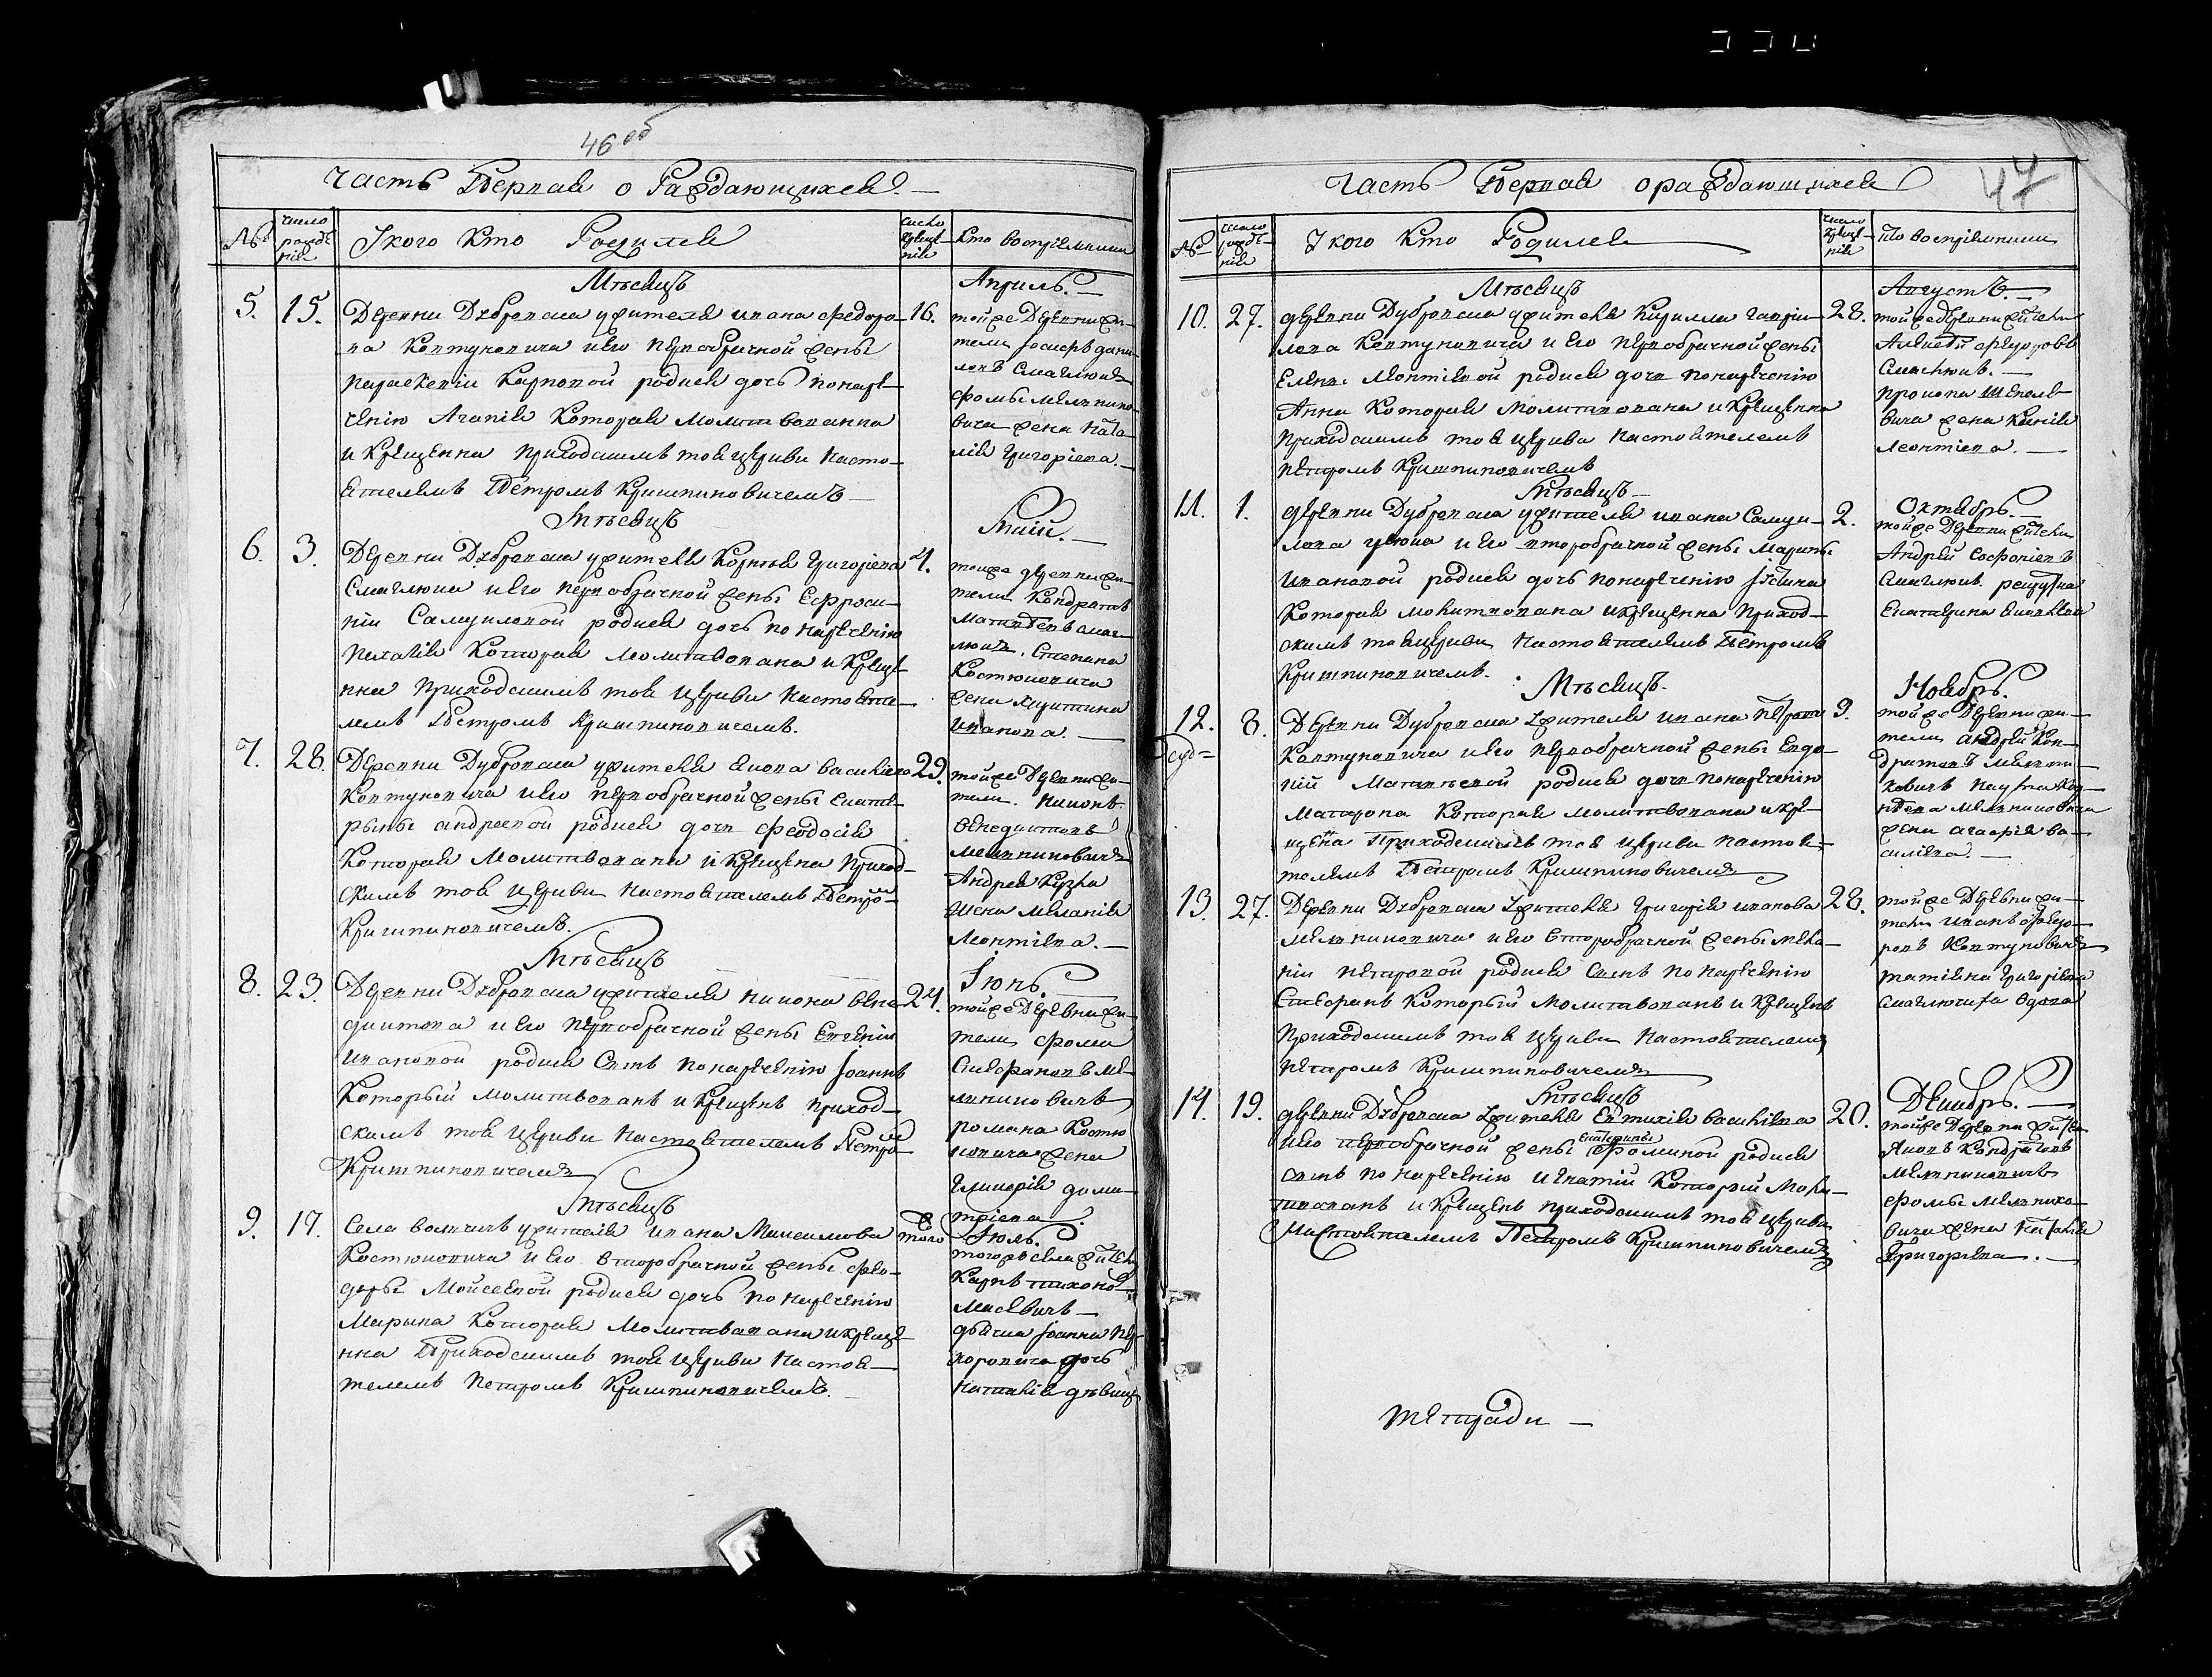 46 об
Часть Первая о Раждающихся
№
число рожде нія
У кого Кто Родился
число крещенія
Кто воспріемники
Мѣсяцъ Апрѣль.
5. 15. Деревни Дубровска жителя ивана федоро- 16.
ва Ковтуновича и его первобрачной жены
параскевіи Карповой родися дочь понаре-
ченію Агапія Которая молитвованна
и Крещенна приходскимъ тоя церкви Насто-
ятелемъ Петромъ Криштиновичемъ
тойже Деревни жи-
тели
дани-
ловъ Смаглюкъ
фомы
вича жена Ната-
лія Григоріева.
Мѣсяцъ Маій.
6. 3. Деревни Дубровска жителя Корнія Григоріева 4.
Смаглюка и его первобрачной жены Ефроси-
ніи Самуиловой родися дочь по нареченію
пелагія Которая молитвована и Креще-
нна приходскимъ тоя церкви настояте-
лемъ Петромъ Криштиновичемъ.
тоиже деревни жи-
тели Кондратъ
Матвѣевъ смаг-
люкъ, Степана
Костюковича
жена
иванова.
7. 28. Деревни Дубровска жителя Якова василіева 29.
Ковтуновича и его первобрачной жены Екате-
рыны андреевой родися дочь феодосія
Которая Молитвована и Крещена приход-
скимъ тоя церкви настоятелемъ Петро-
Криштиновичемъ.
тойже Деревни жи-
тели. Никонъ
Венедиктовъ
Андрея
жена Меланія
Леонтіева.
Мѣсяцъ Іюнь.
8. 23. Деревни Дубровска жителя никона вене- 24.
диктова и его первобрачной жены Евгеніи
ивановой родися Сынъ по нареченію Іоаннъ
Который молитвованъ и Крещенъ приход-
скимъ тоя церкви настоятелемъ Петро-
Криштиновичемъ
тойже Деревни жи-
тели фома
Стефановъ ме-
романа Костю
ковича жена
Гликерія дими-
тріева.
Мѣсяцъ Іюль.
9. 17. Села жителя ивана Максимова того
Костюковича и его второбрачной жены фео-
доры Мойсеевой родися дочь по нареченію
Марина Которая Молитвована и креще-
нна Приходскимъ тоя церкви Настоя-
телемъ Петромъ Криштиновичемъ.
тогожъ села
Карпъ тихоно-
дьячка Іоанна
дочь
наталія дѣвица
47
Часть Первая о раждающихся
№
число рожде нія
У кого Кто Родился
число крещенія
Кто воспріемники
Мѣсяцъ Августъ.
10. 27. деревни Дубровска жителя Кирилла гаври- 28.
лова Ковтуновича и его первобрачной жены
Елены Леонтіевой родися дочь понареченію
Анна Которая Молитвована и Крещенна
приходскимъ тоя церкви настоятелемъ
петромъ Криштиновичемъ
тойже деревни
федоровъ
Смаглюкъ.
вича жена
Леонтіева.
Мѣсяцъ Октябрь.
11. 1. деревни Дубровска жителя ивана Самуи- 2.
лова и его второбрачной жены Марины
ивановой родися дочь понареченію
Которая молитвована и крещенна приход-
скимъ тояцеркви настоятелемъ Петромъ
Криштиновичемъ.
тойже Деревни
Андрей
Смаглюкъ.
Екатерина
Мѣсяцъ. Ноябрь.
12. 8. Деревни Дубровска жителя ивана Петрова 9.
Ковтуновича и его первобрачной жены Евдо-
кіи Матвѣевой родися дочь понареченію
Матрона Которая молитвована и кре-
щена Приходскимъ тоя церкви настоя-
телемъ Петромъ Криштиновичемъ
тойже Деревни жи-
тели андрей Кон-
дратовъ
жена агафія ва-
силіева.
13. 27. Деревни Дубровска жителя Григорія иванова 28.
и его второбрачной жены мела-
ніи петровой родися Сынъ по нареченію
Стефанъ Который Молитвованъ и Крещенъ
приходскимъ тоя церкви Настоятелемъ
петромъ Криштиновичемъ
тойже Деревни жи-
тели иванъ федо-
ровъ Ковтуновичъ
Григоріева
вдова
Мѣсяцъ Декабрь.
14. 19. деревни Дубровска жителя Евтихія василіева 20.
и его первобрачной жены Екатерины фоминой родися
сынъ по нареченію игнатій Который Моли-
твованъ и Крещенъ приходскимъ тоя церкви
Настоятелемъ Петромъ Криштиновичемъ
тойже Деревни
Яковъ Кондратовъ
фомы
вича жена Наталія
Григоріева.
тетради